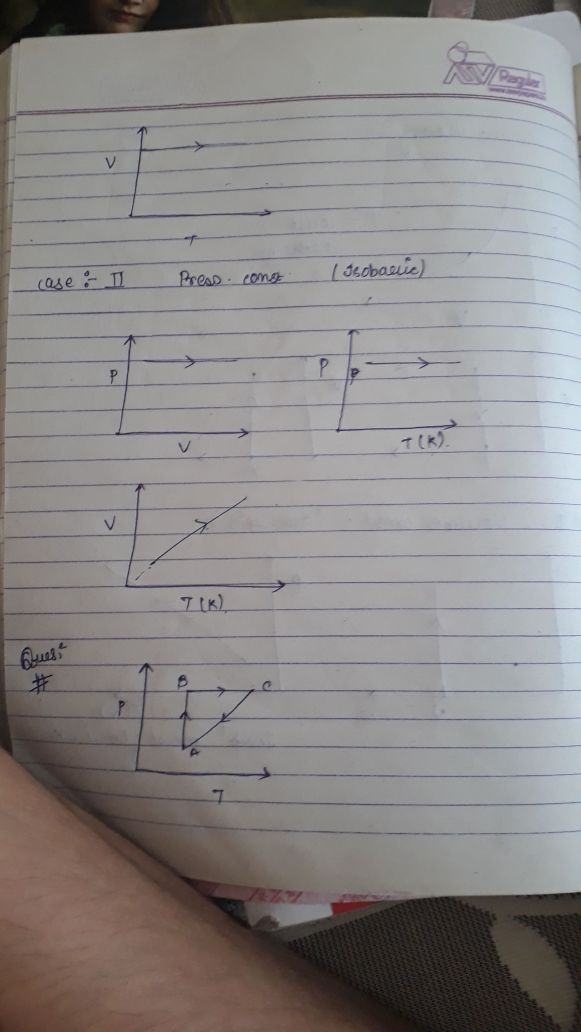 Regular
V
T
case :- II Press. const. (Isobaric)
P
V
P
P
T(K).
V
T(K).
Ques:
#
B
C
P
A
T